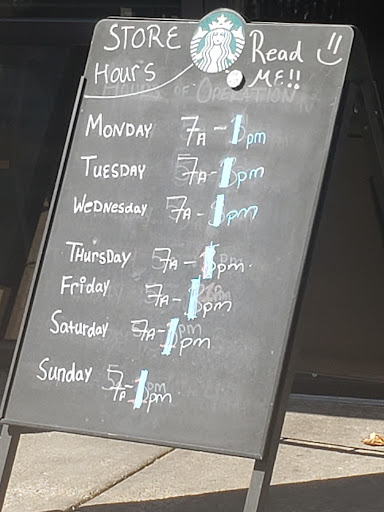 STORE
HOURS
Read
ME!!
HOURS OF OPERATION
MONDAY 7A - 1pm
TUESDAY 7A - 1pm
WEDNESDAY 7A - 1pm
THURSDAY 7A - 1pm.
FRIDAY 7A - 1pm
SATURDAY 7A - 1pm
SUNDAY 7A - 1pm